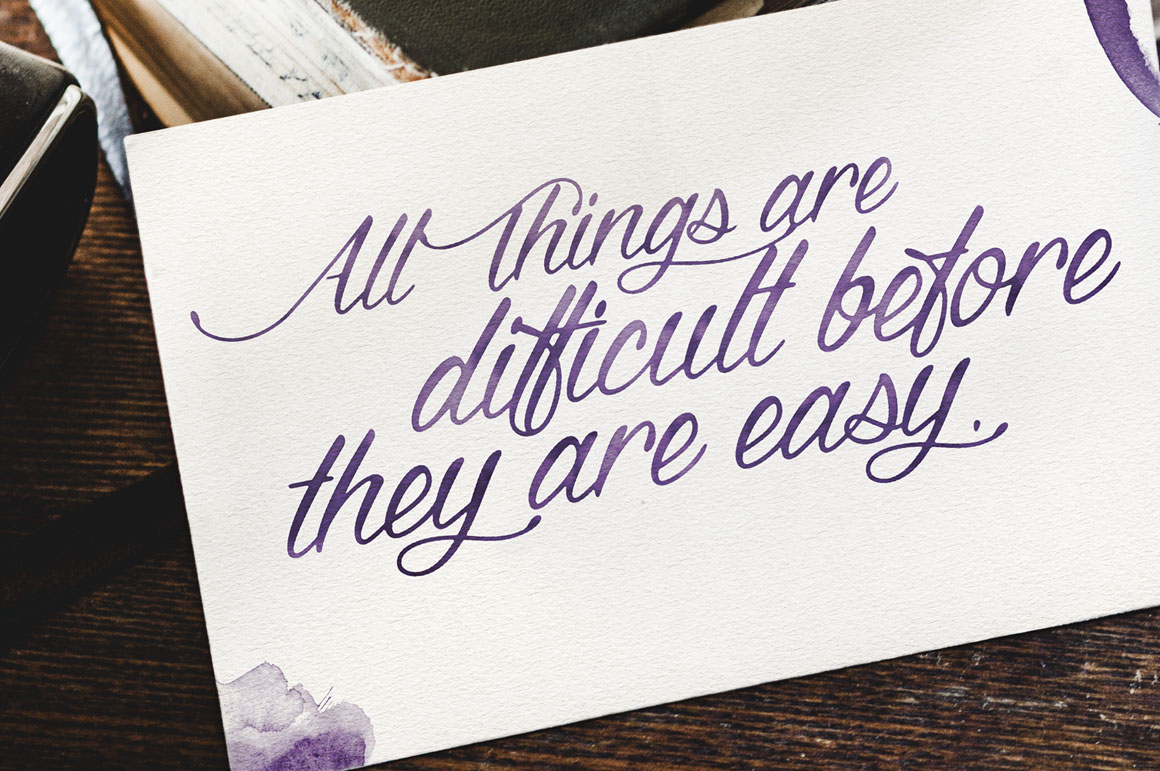 All Things are
difficult before
they are easy.